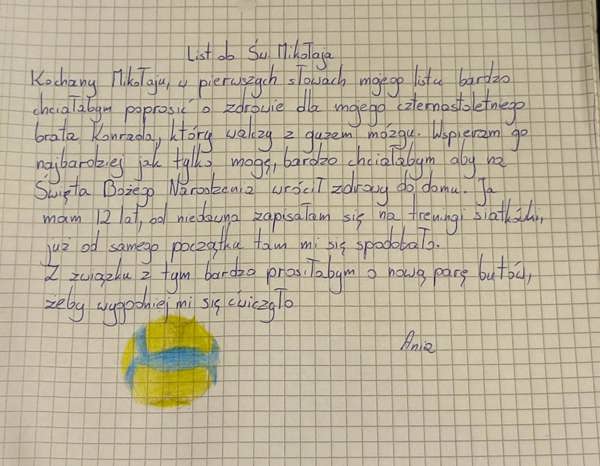 List do Św. Mikołaja
Kochany Mikołaju, w pierwszych słowach mojego listu bardzo
chciałabym poprosić o zdrowie dla mojego czternastoletniego
brata Konrada, który walczy z guzem mózgu. Wspieram go
najbardziej jak tylko mogę, bardzo chciałabym aby na
Święta Bożego Narodzenia wrócił zdrowy do domu. Ja
mam 12 lat, od niedawna zapisałam się na treningi siatkówki,
już od samego początku tam mi się spodobało.
Z związku z tym bardzo prosiłabym o nową parę butów,
żeby wygodniej mi się ćwiczyło
Ania